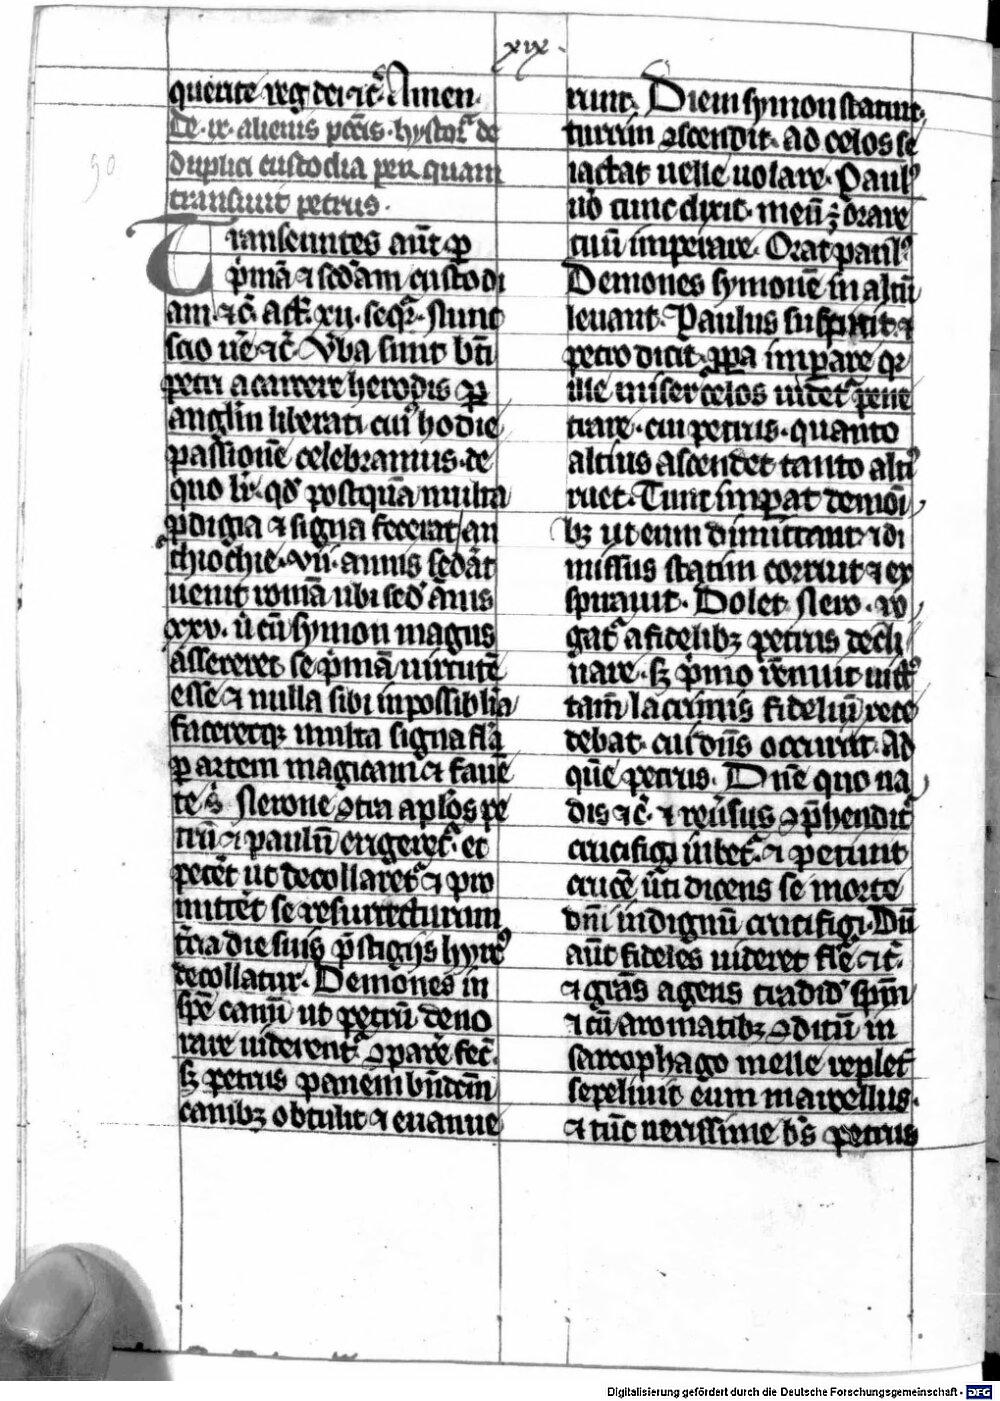 xix
querite reg dei ⁊c̃. Amen.
De. ix. alicuius pctĩs. hystor̃ de
duplici custodia per quam
transiuit petrus.
Transeuntes aut̃ ꝑ
p̃mã ⁊ scd̃am custodi
am ⁊c̃. act. xii. seqr̃. Nunc
scio ue͂ ⁊c̃. Ꝟba sunt bt̃i
petri a carcere herodis ꝑ
angl̃m liberati cui⁹ hodie
passionẽ celebramus. de
quo lr̃. qđ postquã multa
ꝓdigia ⁊ signa fecerat / an
thiochie. vii. annis sed̃at
uenit romã ubi sed̾ ãnis
xxv. ů cũ symon magus
assereret se p̃mã uirtutẽ
esse ⁊ nulla sibi inpossiblia
faceretqꝫ multa signa fl̃a
ꝑ artem magicam ⁊ faue͂
te s̾ Nerone ꝯtra apl̾os pe
trũ ⁊ paulũ erigeret̾. et
petẽt ut decollaret̾ ⁊ pro
mittẽt se resurrecturum
tc̃ia die suis p̃stigijs
decollatur. Demones in
spẽ canũ ut petrũ deuo
rare uiderent̾ ꝯparẽ fec̃.
sꝫ petrus panem bñdcm̃
canibꝫ obtulit ⁊ euanue
runt. Diem symon statuit
turrim ascendit. ad celos se
iactat uelle uolare. Paul⁹
ů tunc dixit. meũ ꝫ orare
tuũ imperare. Orat paul⁹
Demones symonẽ in altũ
leuant. Paulus suspexit ⁊
petro dicit. ꝓpa imꝑare qr
ille miser celos uidet̾ pene
trare. cui petrus. quanto
altius ascendet tanto alti⁹
ruet. Tunc imꝑat demoĩ
bꝫ ut eum dimittant ⁊ di
missus statim corruit ⁊ ex
spirauit. Dolet Nero. ro
gat̾ a fidelibꝫ petrus decli
nare. sꝫ p̃mo renuit uict⁹
tam̃ lacrimis fideliũ rece
debat. cui dñs occurrit. Ad
quẽ petrus. Dñe quo ua
dis ⁊c̃. ⁊ reůsus ꝯp̃henditr̃
crucifigi iubet̾. ⁊ petiuit
crucẽ ůti dicens se morte
dñi indignũ crucifigi. Dũ
aut̃ fideles uideret fle͂ ⁊c̃.
⁊ grãs agens tradid̾ spm̃
⁊ cũ aromatibꝫ ꝯditũ in
sarcophago melle replet̃
sepeliuit eum marcellus.
⁊ tũc uerissime b̃s petrus
Digitalisierung gefördert durch die Deutsche Forschungsgemeinschaft - DFG